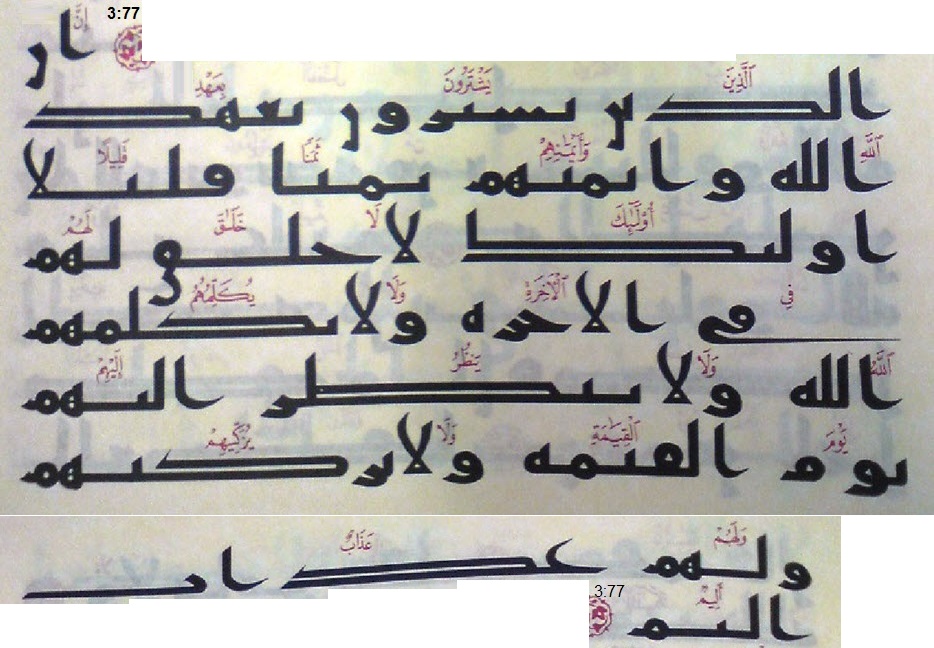 3:77
إِنَّ
ان
ٱلَّذِينَ يَشْتَرُونَ بِعَهْدِ
الذين يشترون بعهد
ٱللَّهِ وَأَيْمَٰنِهِمْ ثَمَنًا قَلِيلًا
الله وايمنهم ثمنا قليلا
أُو۟لَٰٓئِكَ لَا خَلَٰقَ لَهُمْ
اوليك لا خلق لهم
فِي ٱلْأَخِرَةِ وَلَا يُكَلِّمُهُمُ
في الاخره ولا يكلمهم
ٱللَّهُ وَلَا يَنظُرُ إِلَيْهِمْ
الله ولا ينظر اليهم
يَوْمَ ٱلْقِيَٰمَةِ وَلَا يُزَكِّيهِمْ
يوم القيمه ولا يزكيهم
وَلَهُمْ عَذَابٌ
ولهم عذاب
أَلِيمٌ 3:77
اليم